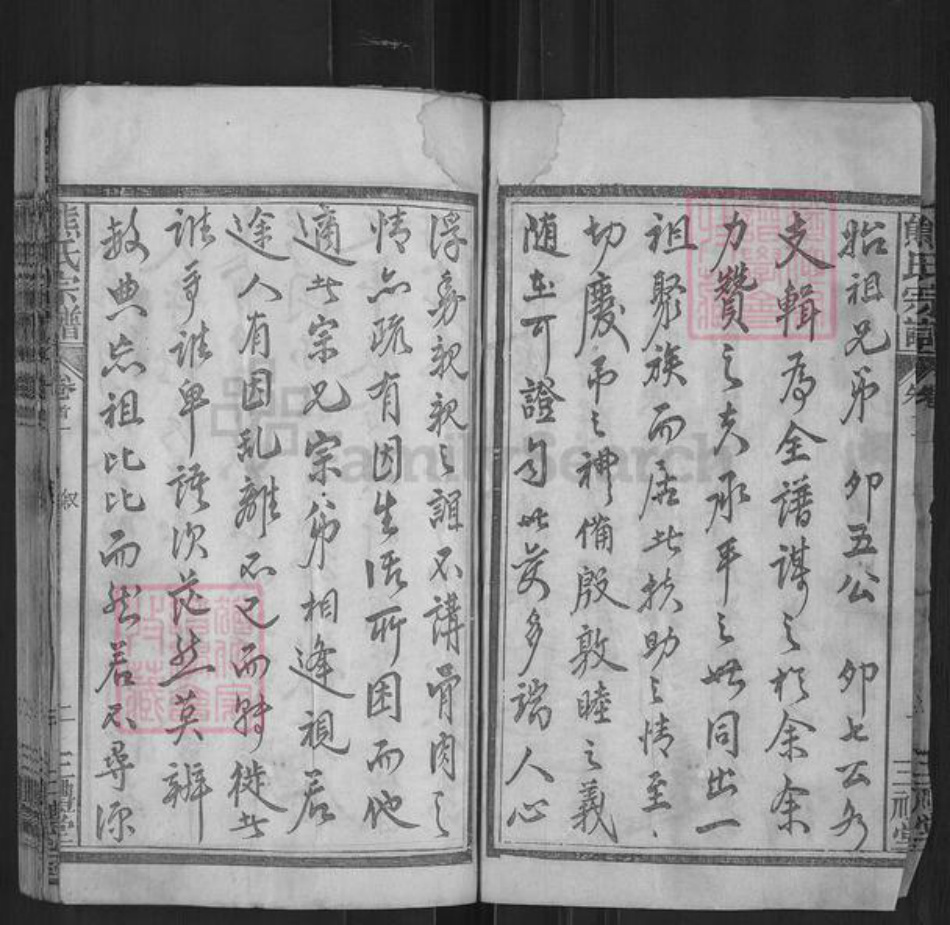 熊氏宗譜
三禮堂
始祖兄弟 卯五公 卯七公各
支輯為全譜謀之於余余
力贊之夫承平之世同出一
祖聚族而居此扶助之情至
切慶弔之禮備殷敦睦之義
随在可證自世变多端人心
浮夢親親之誼不講骨肉之
情亦疏有因生活所困而他
適者宗兄宗弟相逢視若
途人有因乱離不已而轉徙者
誰爭誰卑譜次茫然莫辨
数典忘祖比比而然若不尋源
熊氏宗譜
卷首
叙
二
三禮堂
FamilySearch